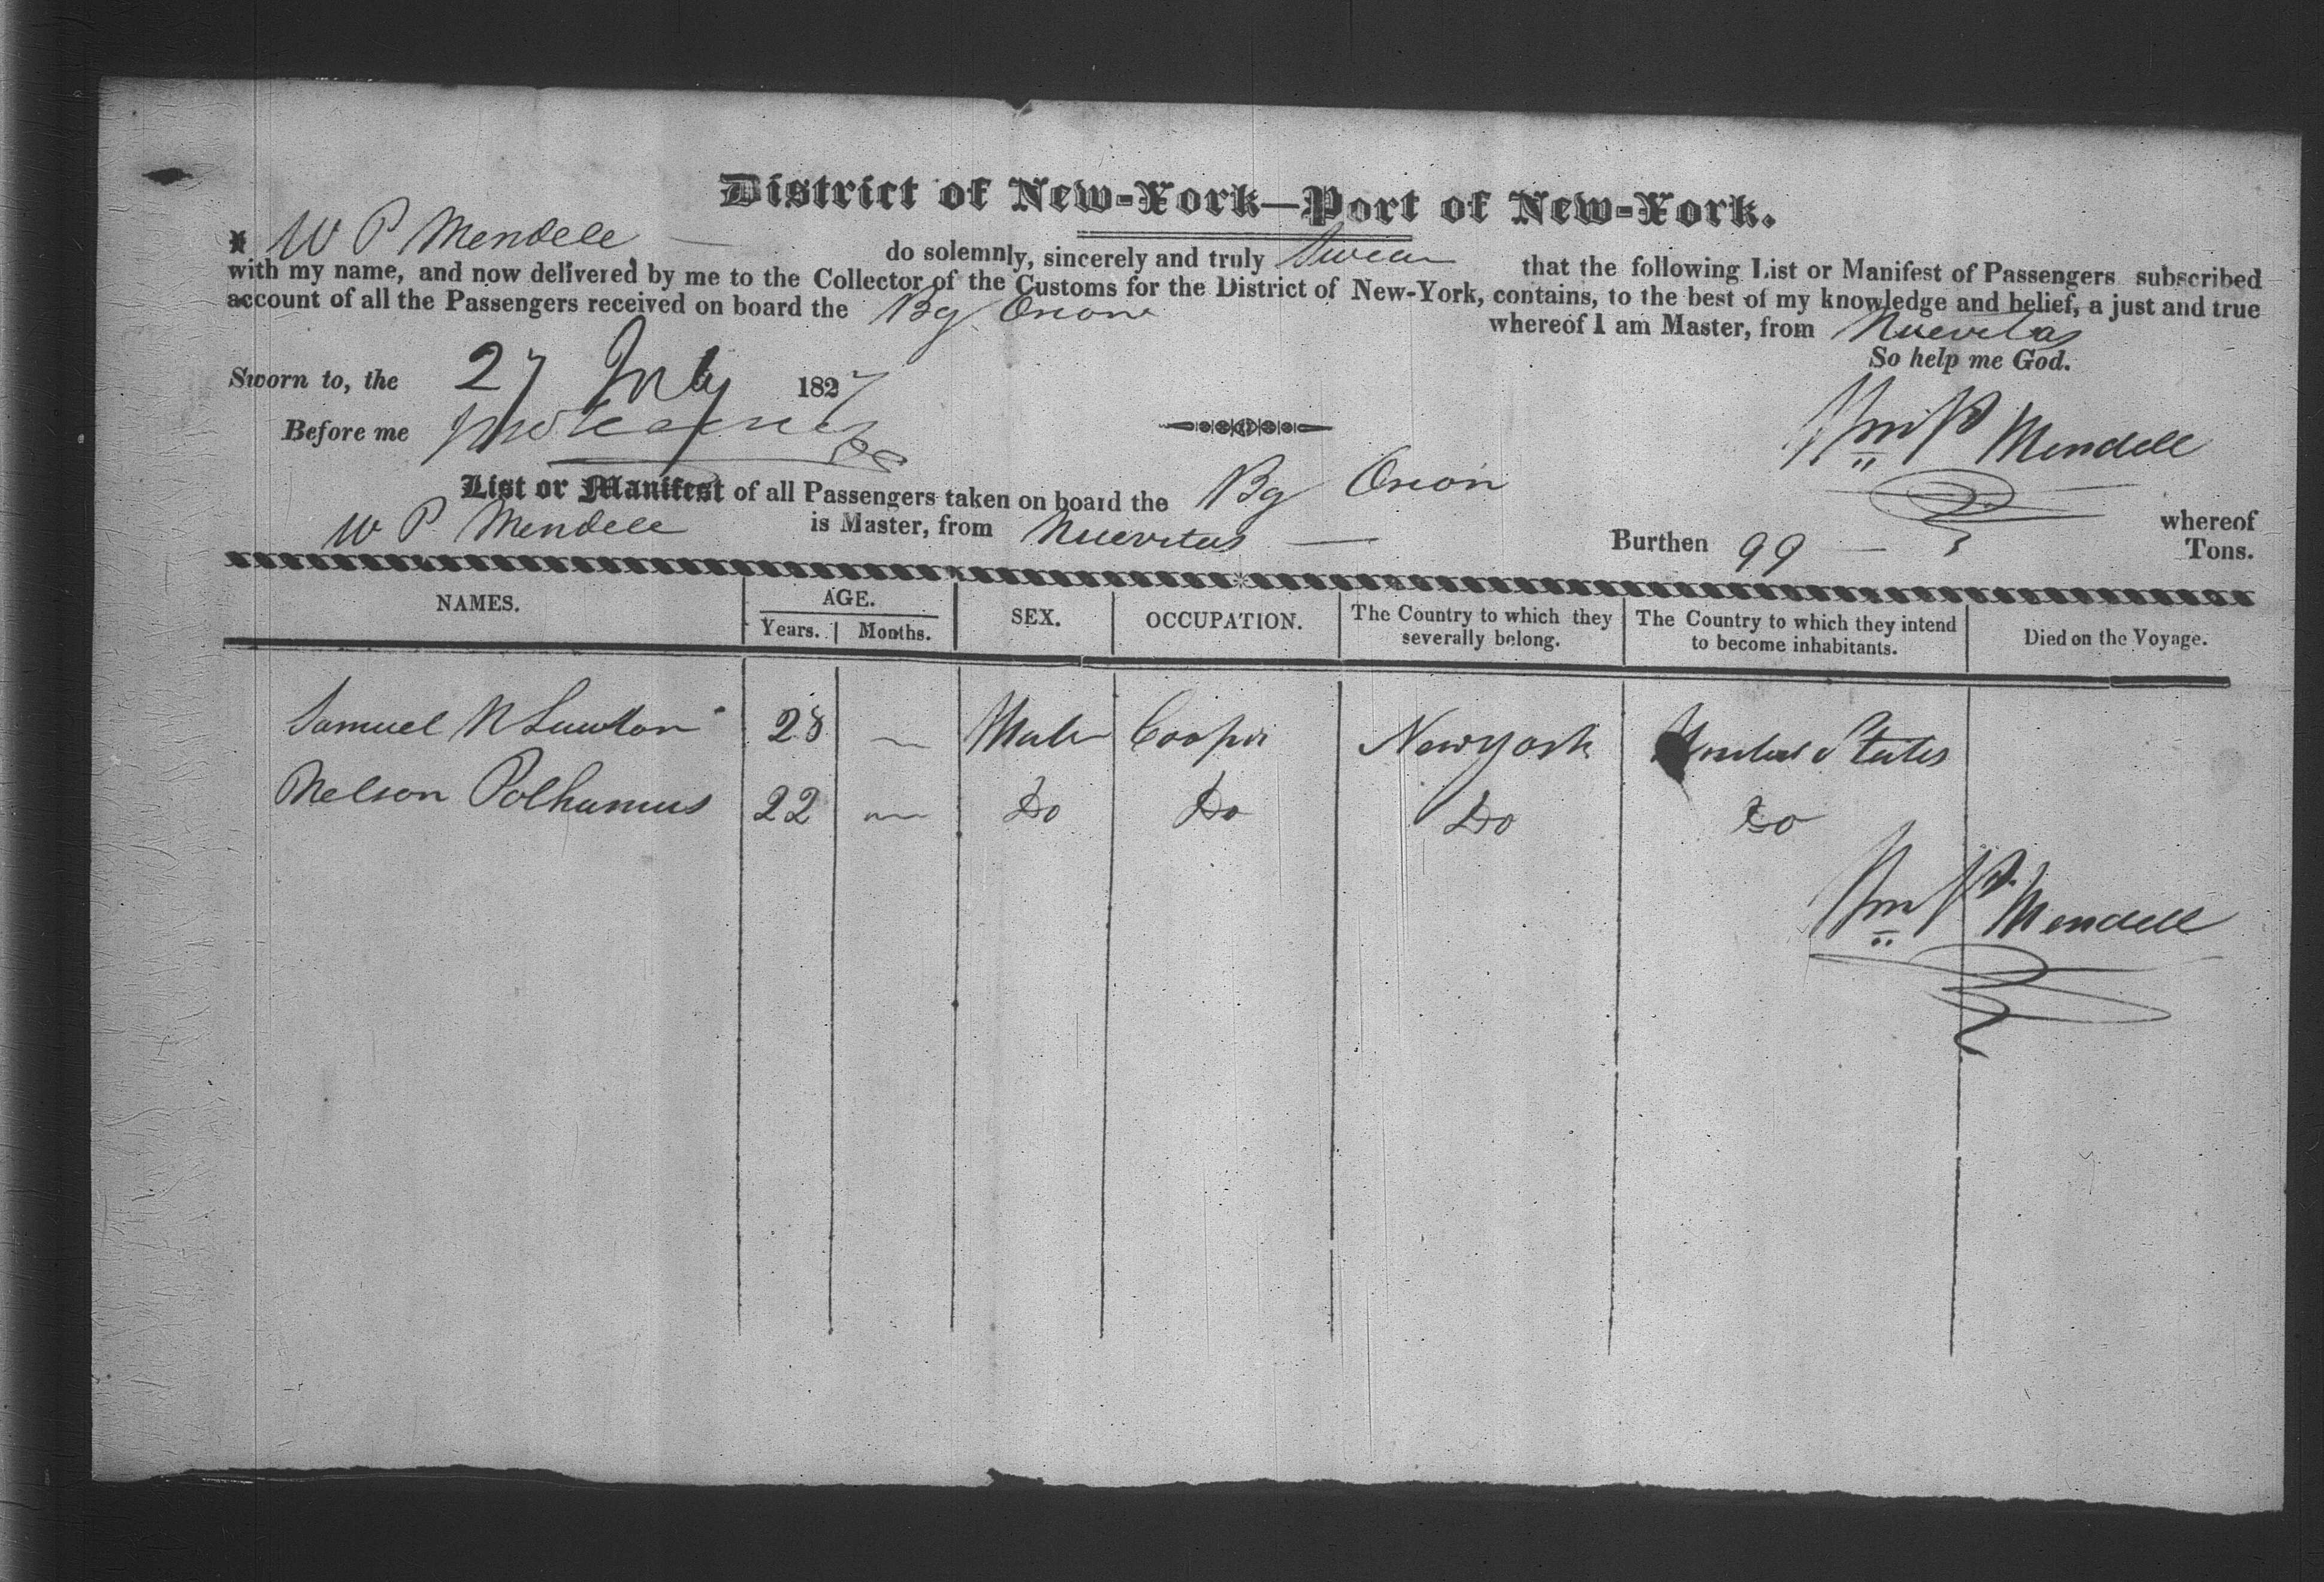 District of New-York—Port of New-York.
I W P Mendell do solemnly, sincerely and truly Swear that the following List or Manifest of Passengers subscribed
with my name, and now delivered by me to the Collector of the Customs for the District of New-York, contains, to the best of my knowledge and belief, a just and true
account of all the Passengers received on board the Bg Orion whereof I am Master, from Nuevitas
So help me God.
Sworn to, the 27 July 1827
Before me
Wm P Mendell
List or Manifest of all Passengers taken on board the Bg Orion whereof
W P Mendell is Master, from Nuevitas Burthen 99 Tons.
NAMES. AGE. Years. Months. SEX. OCCUPATION. The Country to which they severally belong. The Country to which they intend to become inhabitants. Died on the Voyage.
Samuel N Lawton 28 — Male Cooper New York United States
Nelson Polhamus 22 — Do Do Do Do
Wm P. Mendell